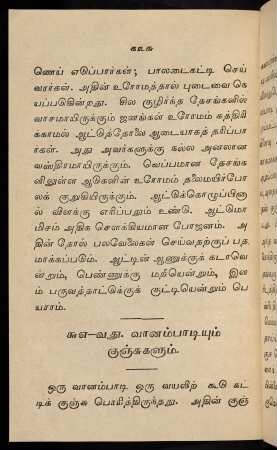 ௬௩௬
ணெய் எடுப்பார்கள்; பாலடைகட்டி செய்
வார்கள். அதின் உரோமத்தால் புடைவை நெ
யப்படுகின்றது. சில குழிர்ந்த தேசங்களில்
வாசமாயிருக்கும் ஜனங்கள் உரோமம் கத்திரி
க்காமல் ஆட்டுத்தோலை ஆடையாகத் தரிப்பா
ர்கள். அது அவர்களுக்கு நல்ல அனலான
வஸ்திரமாயிருக்கும். வெப்பமான தேசங்க
ளிலுள்ள ஆடுகளின் உரோமம் தலைமயிர்போ
லக் குறுகியிருக்கும். ஆட்டுக்கொழுப்பினா
ல் விளக்கு எரிப்பதும் உண்டு. ஆட்டுமா
மிசம் அதிக சௌக்கியமான போஜனம். அ
தின் தோல் பலவேலைகள் செய்வதற்குப் பத
மாக்கப்படும். ஆட்டின் ஆணுக்குக் கடாவெ
ன்றும், பெண்ணுக்கு மறியென்றும், இள
ம் பருவத்தாட்டுக்குக் குட்டியென்றும் பெ
யராம்.
௬௭-வது. வானம்பாடியும்
குஞ்சுகளும்.
ஒரு வானம்பாடி ஒரு வயலிற் கூடு கட்
டிக் குஞ்சு பொரித்திருந்தது. அதின் குஞ்